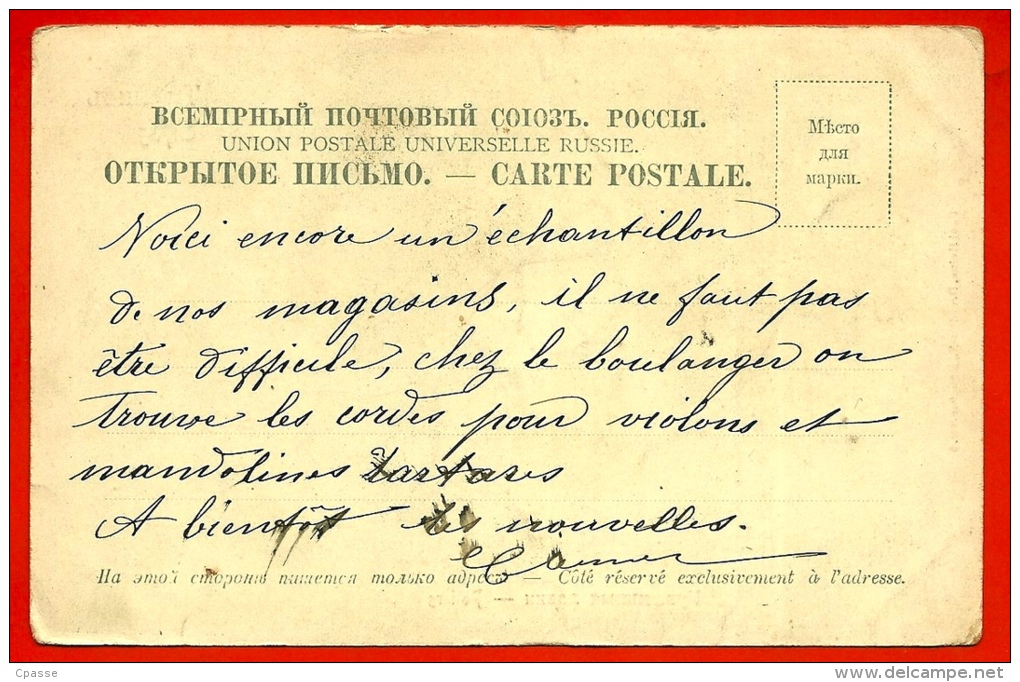 ВСЕМІРНЫЙ ПОЧТОВЫЙ СОЮЗЪ. РОССІЯ.
UNION POSTALE UNIVERSELLE RUSSIE.
ОТКРЫТОЕ ПИСЬМО. — CARTE POSTALE.
Мѣсто
для
марки.
Voici encore un échantillon
de nos magasins, il ne faut pas
être difficile, chez le boulanger on
trouve les cordes pour violons et
mandolines tartares
A bientôt des nouvelles.
На этой сторонѣ пишется только адресъ — Côté réservé exclusivement à l'adresse.
Cpasse
www.delcampe.net